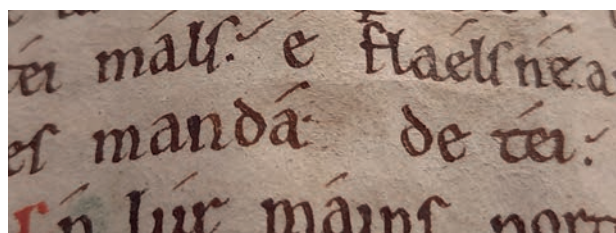 tei máls. é flaéls né a
es mandá de tei.
ín lur máins port